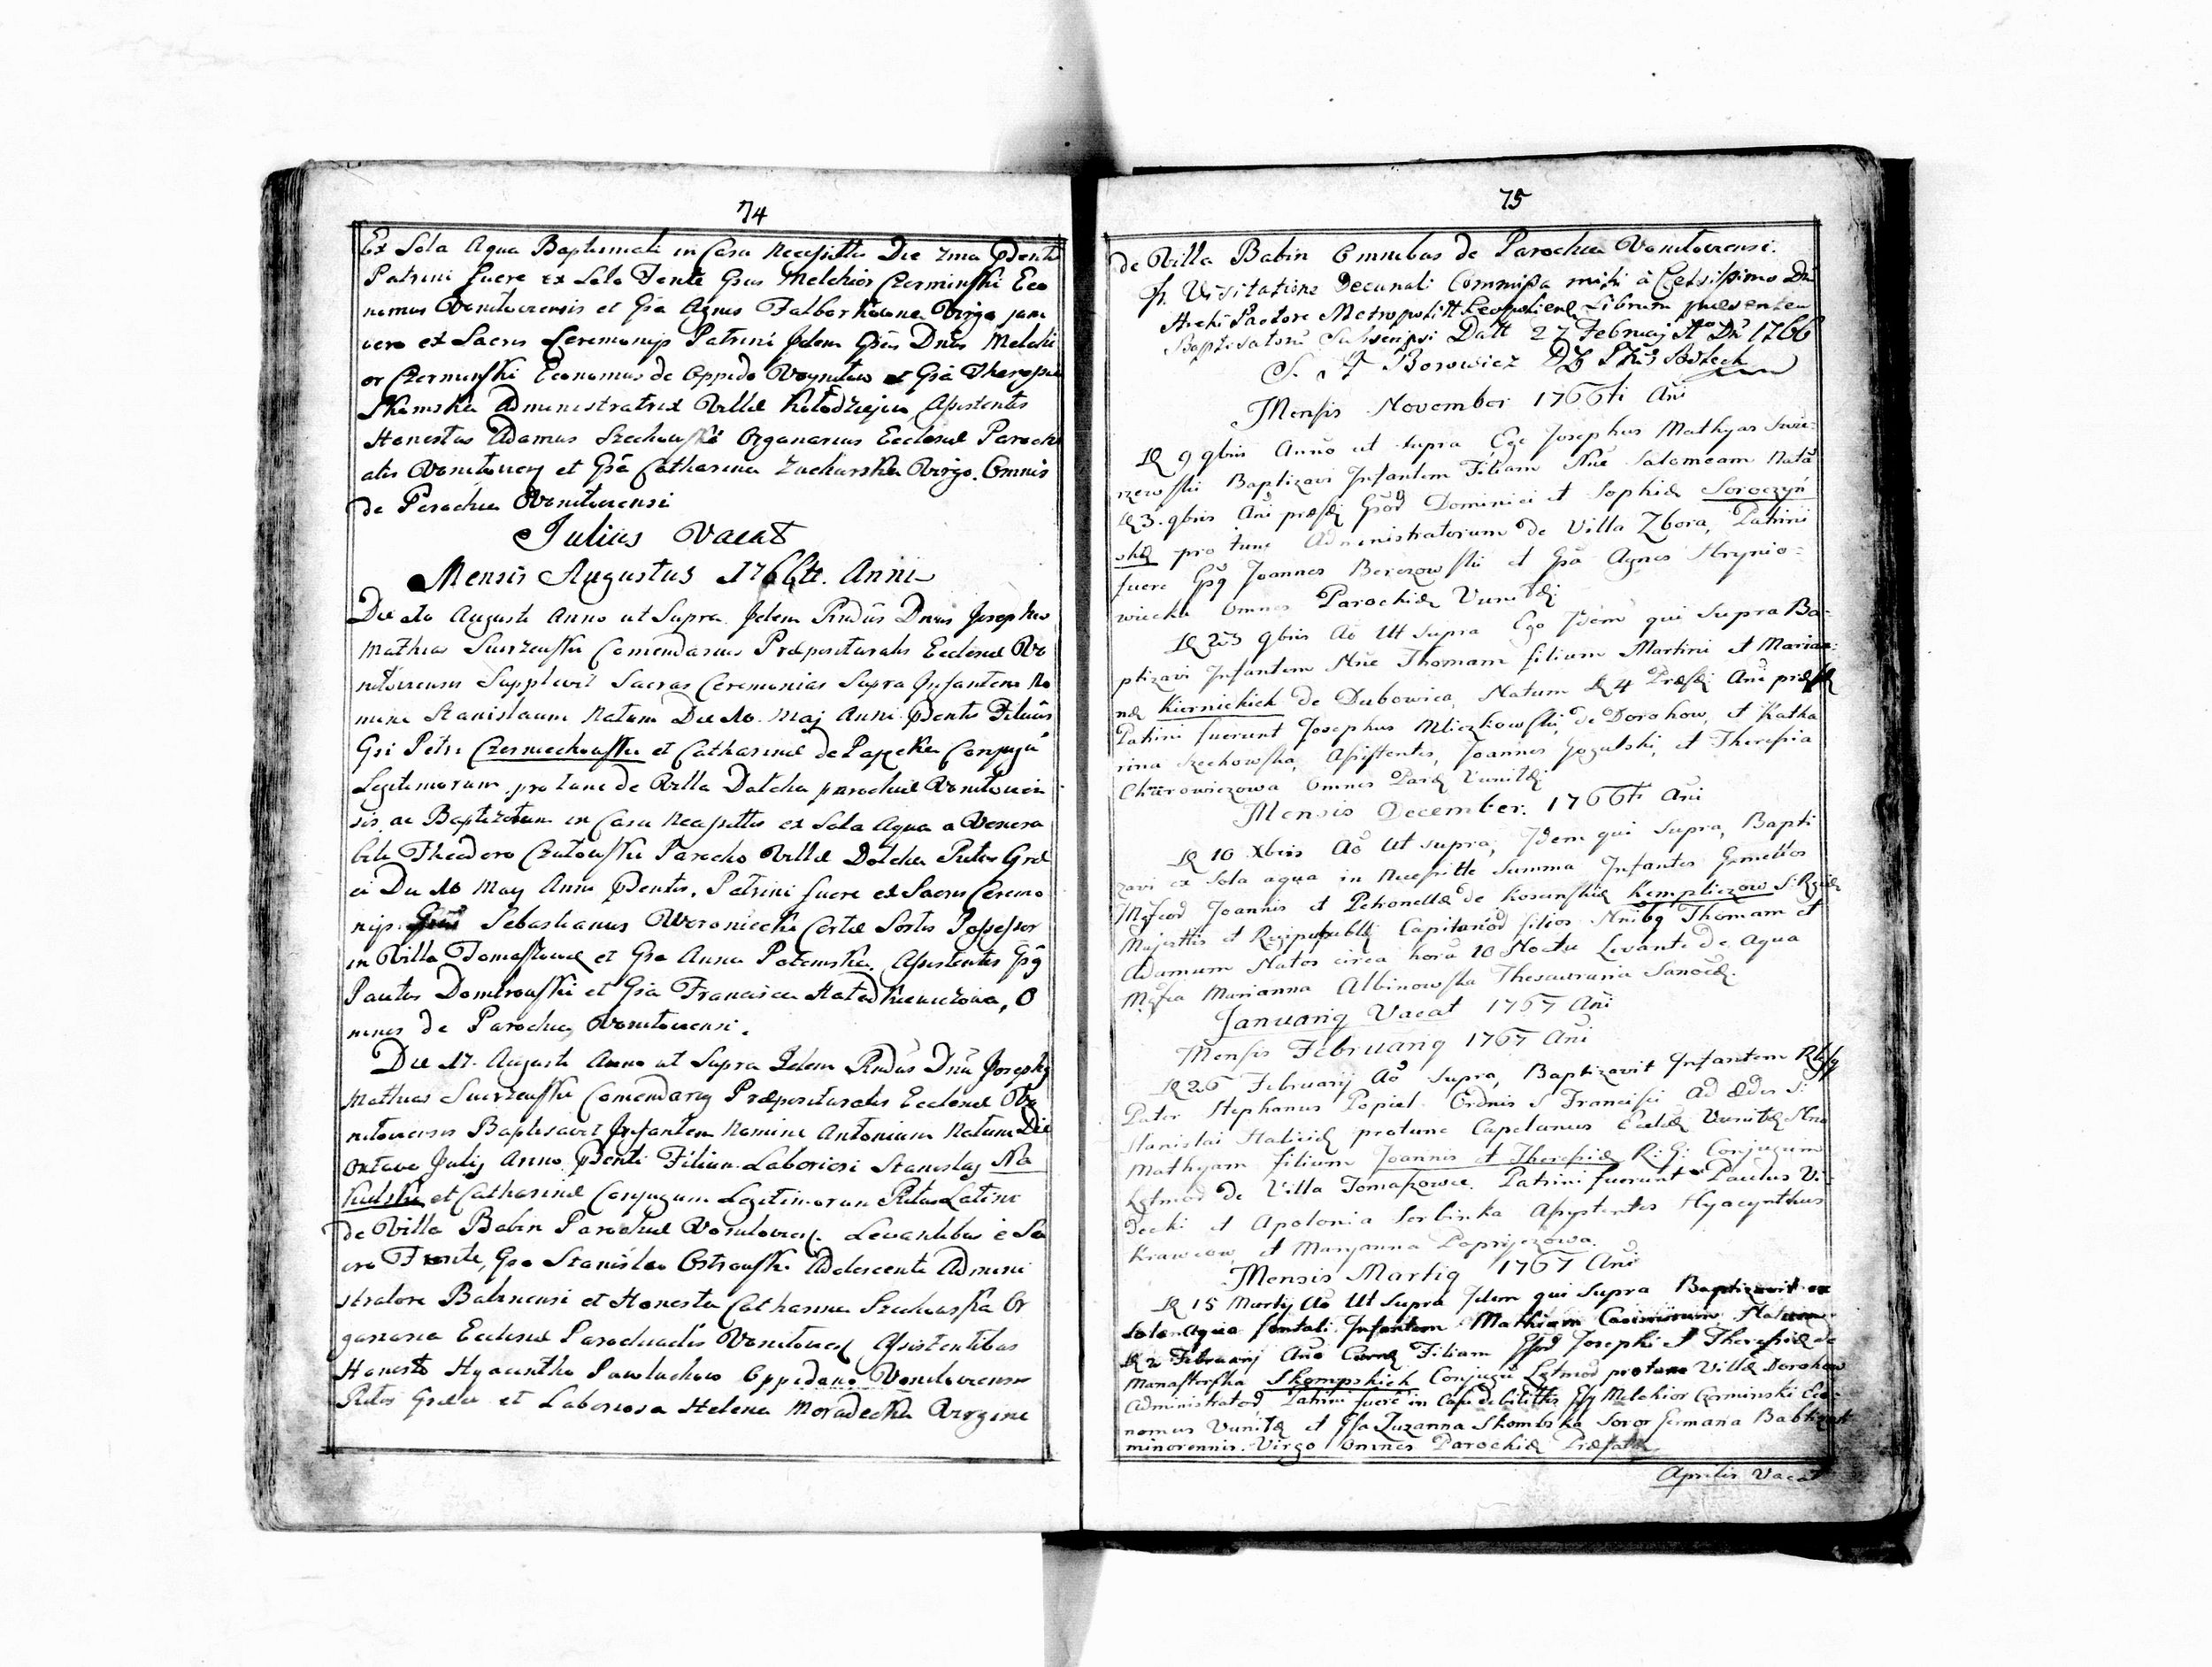 74
Ex Sola Aqua Baptismali in Casu Necessittis Die 7ma Psentis
Patrini fuere ex Solo Fonte Gsus Melchior Czerminski Eco
nomus Vonitoviensis et Gsa Agnes Falborkowna Virgo jam
vero ex Sacris Ceremonijs Patrini Idem Gsus Dnus Melchi
or Czerminski Economus de Oppido Woynitow et Gsa Theresia
Skemska Administratrix Villæ Kołodziejow Assistentes
Honestus Adamus Szechowski Organarius Ecclesiæ Parochi
alis Vonitovien et Gsa Catharina Zucharska Virgo. Omnes
de Parochia Vonitoviensi
Julius Vacat
Mensis Augustus 1766ti. Anni
Die 10 Augusti Anno ut Supra Idem Rndus Dnus Josephus
Mathias Swirzewski Comendarius Præposituralis Ecclesiæ Vo
nitoviensis Supplevit Sacras Ceremonias Supra Infantem No
mine Stanislaum Natum Die 10. Maj Anni Psentis Filium
Gsi Petri Czerniechowski et Catharinæ de Papecki Conjugu
Legitimorum pro tunc de Villa Dołcha parochiæ Vonitovien
sis ac Baptizatum in Casu Necessittis ex Sola Aqua a Venera
bili Theodoro Czułowski Parocho Villæ Dołcha Ritus Græ
ci Die 10 May Anni Psentis. Patrini fuere ex Sacris Ceremo
nijs Sebastianus Woroniecki Certæ Sortis Possessor
in Villa Tomaszowce et Gsa Anna Potemska. Assistentes Gsq
Paulus Dombrowski et Gsa Francisca Hatadkiewiczowa, O
mnes de Parochia Vonitoviensi.
Die 17. Augusti Anno ut Supra Idem Rndus Dnus Josephq
Mathias Swirzewski Comendariq Præposituralis Ecclesiæ Vo
nitoviensis Baptisavit Infantem Nomine Antonium Natum Die
Octava Julij Anno Psenti Filium Laboriosi Stanislaj Na
kulski et Catharinæ Conjugum Legitimorum Ritus Latini
de Villa Babin Parochiæ Vonitovien. Levantibus è Sa
cro Fonte, Gso Stanislao Ostrowski Adolescente Admini
stratore Babinensi et Honesta Catharina Szechowska Or
ganaria Ecclesiæ Parochialis Vonitovien Assistentibus
Honesto Hyacintho Pawluchow Oppidano Vonitoviensi
Ritus Græci et Laboriosa Helena Moradecka Virgine
75
de Villa Babin Omnibus de Parochia Vonitoviensi.
fr. Visitatione Decanali Commissa mihi à Celsissimo Dno
Archi Pastore Metropolitt Leopoliens Librum præsentem
Baptisatorū Subscripsi Datt 27 Februarij Ao Dni 1766
S. A Borowicz
Mensis November 1766ti Ani
D 9 9bris Anno ut supra Ego Josephus Mathyas Swir-
rzewski Baptizavi Infantem Filiam Nne Salomeam Natā
D 3. 9bris Ani præsti Gsor Dominici et Sophiæ Soroczyń
skie pro tunc Administratorum de Villa Zbora, Patrini
fuere Gsq Joannes Berezowski et Gsa Agnes Hrynio-
wiecka Omnes Parochiæ Vunitt
D 23 9bris Ao Ut Supra Ego Idem qui Supra Ba-
ptizavi Infantem Nne Thomam filium Martini et Marian-
næ Kiernickich de Dubowica, Natum D 4 Præsti Ani præsti
Patrini fuerunt Josephus Mliczkowski, de Dorohow, et Katha
rina Szechowska, Assistentes, Joannes Gogulski, et Theresia
Charowiczowa Omnes Paræ Vunitt
Mensis December. 1766ti Ani
D 10 Xbris Ao Ut supra, Idem qui Supra, Bapti
zavi ex Sola aqua in Necessitte Summa Infantes Gemellos
Mgfcor Joannis et Petronellæ de Kosinskie Kempliczow S. Rgiæ
Majesttis et Reipipubllæ Capitaneor filios Nnibq Thomam et
Adamum Natos circa horā 10 Noctu Levante de Aqua
Mgfca Marianna Albinowska Thesauraria Sanocæ.
Januariq Vacat 1767 Ani
Mensis Februariq 1767 Ani
D 26 February Ao Supra, Baptizavit Infantem Rlgsq
Pater Stephanus Popiel Ordnis S Francisci Ad Ædes S.
Stanislai Haliciæ protunc Capelanus Ecclæ Vunitt Nne
Mathyam filium Joannis et Theresiæ R. G. Conjugum
Lgtmor de Villa Tomaszowce. Patrini fuerunt Paulus Vi-
decki et Apolonia Serbinka Assystentes Hyacynthus
Krawcow, et Maryanna Papryczowa.
Mensis Martiq 1767 Ani
D 15 Martij Ao Ut Supra Idem qui Supra Baptizavit ex
Sola Aqua fontali Infantem Mathiam Casimirum Natum
D 2 Februarij Ano Curræ Filium Gsor Josephi et Theresiæ de
Manasterska Skempskich Conjugū Lgtmor protunc Villæ Dorohow
Administrator Patrini fuere in Casu debilittis Gsq Melchior Czerminski Eco-
nomus Vunitt et Gsa Zuzanna Skombska Soror Germana Babtizati
minorennis. Virgo Omnes Parochiæ Præfatæ
Aprilis Vacat